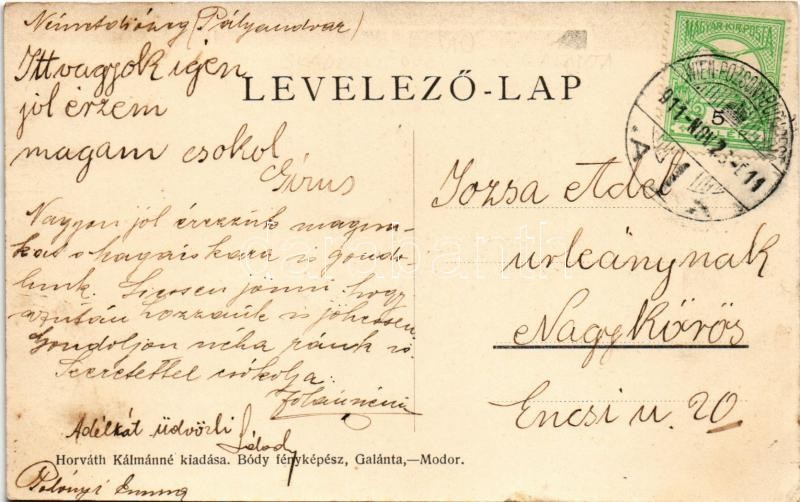 Németdiószeg (Pályaudvar)
Itt vagyok igen
jól érzem
magam csokol
Girus
Nagyon jól érezzük magun-
kat s hagaiskara is gondo-
lunk. Siessen jönni, hogy
azután hozzánk is jöhessen.
Gondoljon néha ránk is.
Szeretettel csókolja
Adélkát üdvözli
LEVELEZŐ-LAP
MAGYAR KIR. POSTA
5
WIEN-POZSONY-BUDAPEST
911-NOV 23
Jozsa Adel
urleánynak
Nagykőrös
Encsi u. 20
Horváth Kálmánné kiadása. Bódy fényképész, Galánta,—Modor.
Polónyi Emma
darabanth